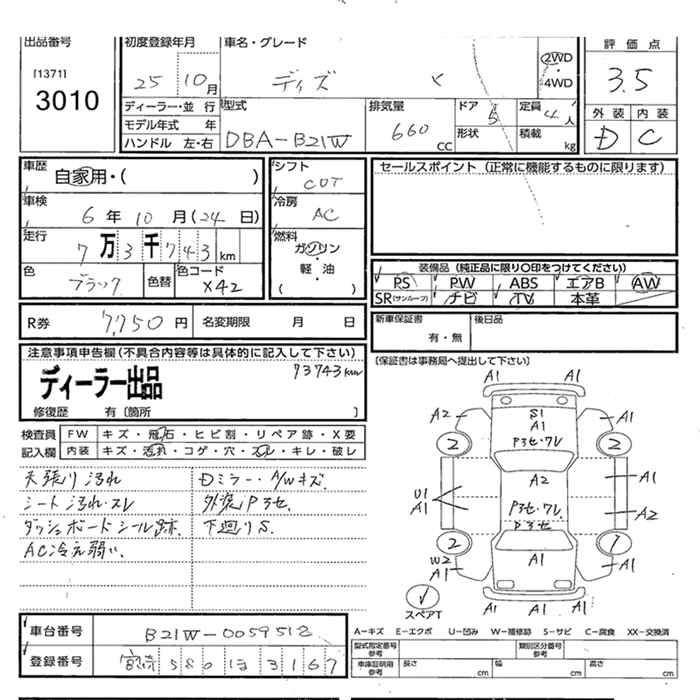 出品番号 初度登録年月 車名・グレード 評価点
[1371] 25 10月 ディズ 2WD ・ 4WD 3.5
3010
ディーラー・並行 型式 排気量 ドア 定員 外装 内装
モデル年式 年 DBA-B21W 660 CC 5 4人 D C
ハンドル 左・右 形状 積載 kg
車歴 自家用・( ) シフト CVT セールスポイント (正常に機能するものに限ります)
車検 6年 10月 (24日) 冷房 AC
走行 7万3千743km 燃料 ガソリン ・ 軽・油 ( )
色 ブラック 色替 色コード X42
装備品 (純正品に限り○印をつけてください)
PS PW ABS エアB AW
SR(サンルーフ) ナビ TV 本革
R券 7,750円 名変期限 月 日 新車保証書 有・無 後日品
注意事項申告欄(不具合内容等は具体的に記入して下さい) (保証書は事務局へ提出して下さい)
ディーラー出品 73743km
修復歴 有〔箇所 〕
検査員 FW キズ・飛石・ヒビ割・リペア跡・X要
記入欄 内装 キズ・汚れ・コゲ・穴・スレ・キレ・破レ
天張り汚れ Dミラー・A/Wキズ
シート汚れ・スレ 外装Pラセ
ダッシュボードシール跡 下廻りS
AC冷え弱い
A1 A1
A2 S1 A1
A1
2 Pラセ・ワレ 2
A2 A1
U1
A1 Pラセ・ワレ A2
Pラセ
2 1
W2
A1 A1 A1
A1 A1
スペアT
A-キズ E-エクボ U-凹み W-補修跡 S-サビ C-腐食 XX-交換済
車台番号 B21W-0059512
登録番号 580 ほ 3167
型式指定番号 参考 類別区分番号 参考
車庫証明用 参考 長さ cm 幅 cm 高さ cm